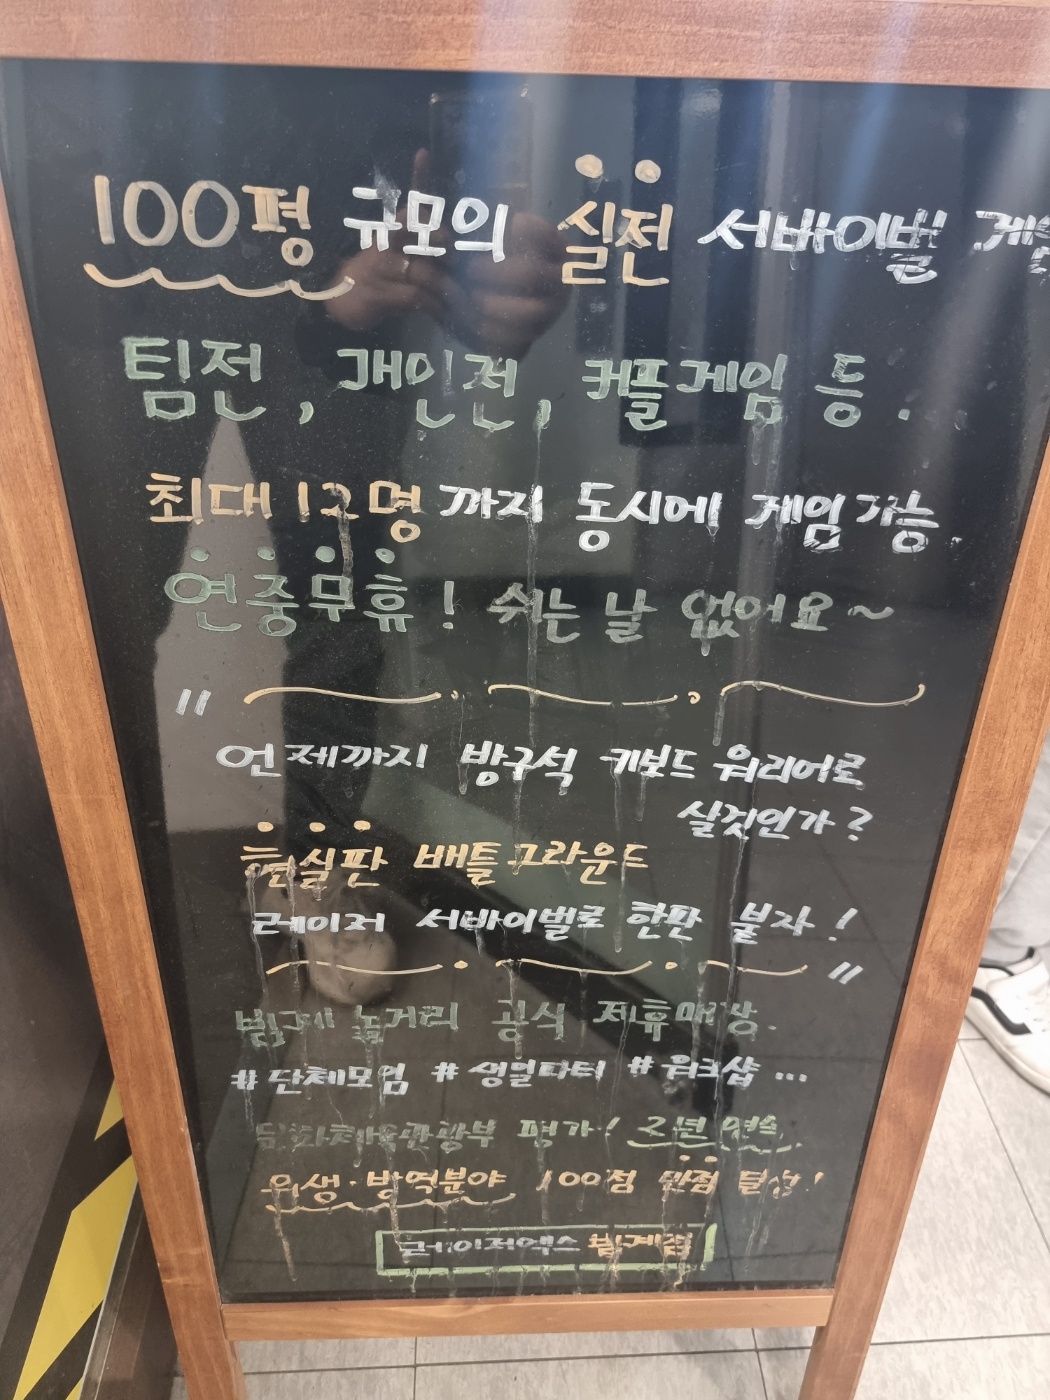 100평 규모의 실전 서바이벌 게임
팀전, 개인전, 커플게임 등.
최대 12명 까지 동시에 게임 가능.
연중무휴! 쉬는 날 없어요~
"
언제까지 방구석 키보드 워리어로
살것인가?
현실판 배틀그라운드
레이저 서바이벌로 한판 붙자!
"
범계 놀거리 공식 제휴매장.
#단체모임 #생일파티 #워크샵 ...
문화체육관광부 평가! 2년 연속
위생·방역분야 100점 만점 달성!
레이저엑스 범계점